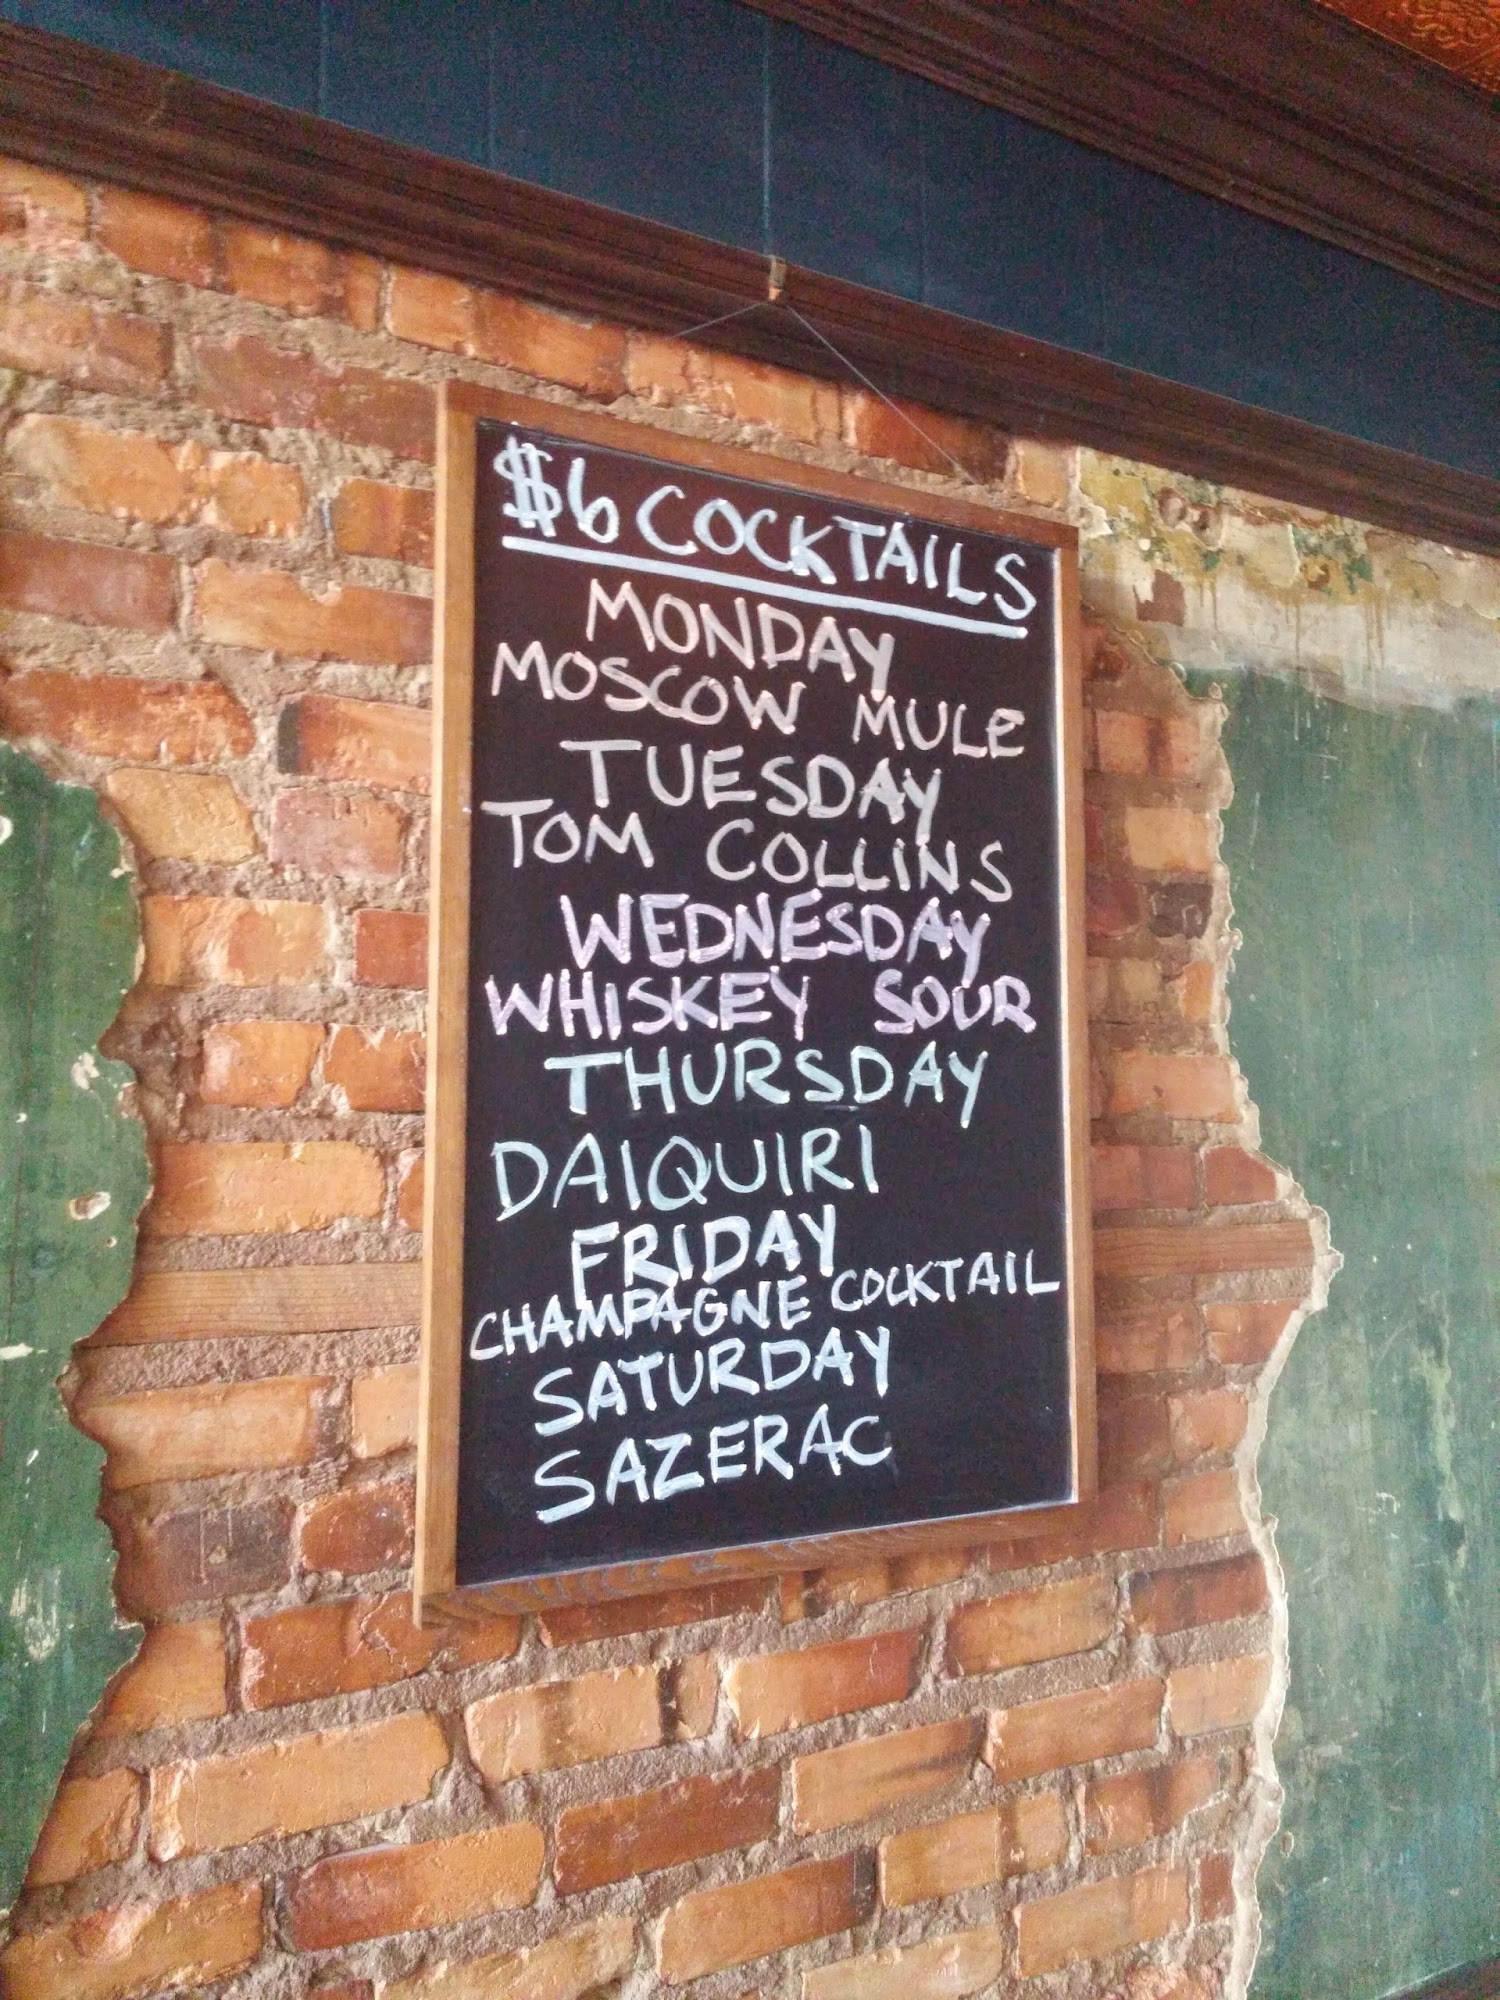 $6 COCKTAILS
MONDAY
MOSCOW MULE
TUESDAY
TOM COLLINS
WEDNESDAY
WHISKEY SOUR
THURSDAY
DAIQUIRI
FRIDAY
CHAMPAGNE COCKTAIL
SATURDAY
SAZERAC